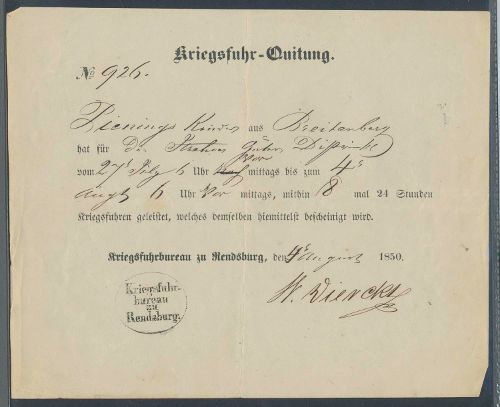 Kriegsfuhr-Quitung.
No 926.
Pienings Kinder aus Breitenberg
hat für Die
vom 27t July 6 Uhr Vor mittags bis zum 4t
Augt 6 Uhr Vor mittags, mithin 8 mal 24 Stunden
Kriegsfuhren geleistet, welches demselben hiemittelst bescheinigt wird.
Kriegsfuhrbureau zu Rendsburg, den 4t August 1850.
Kriegsfuhr-
bureau
zu
Rendsburg.
W. Dierckx